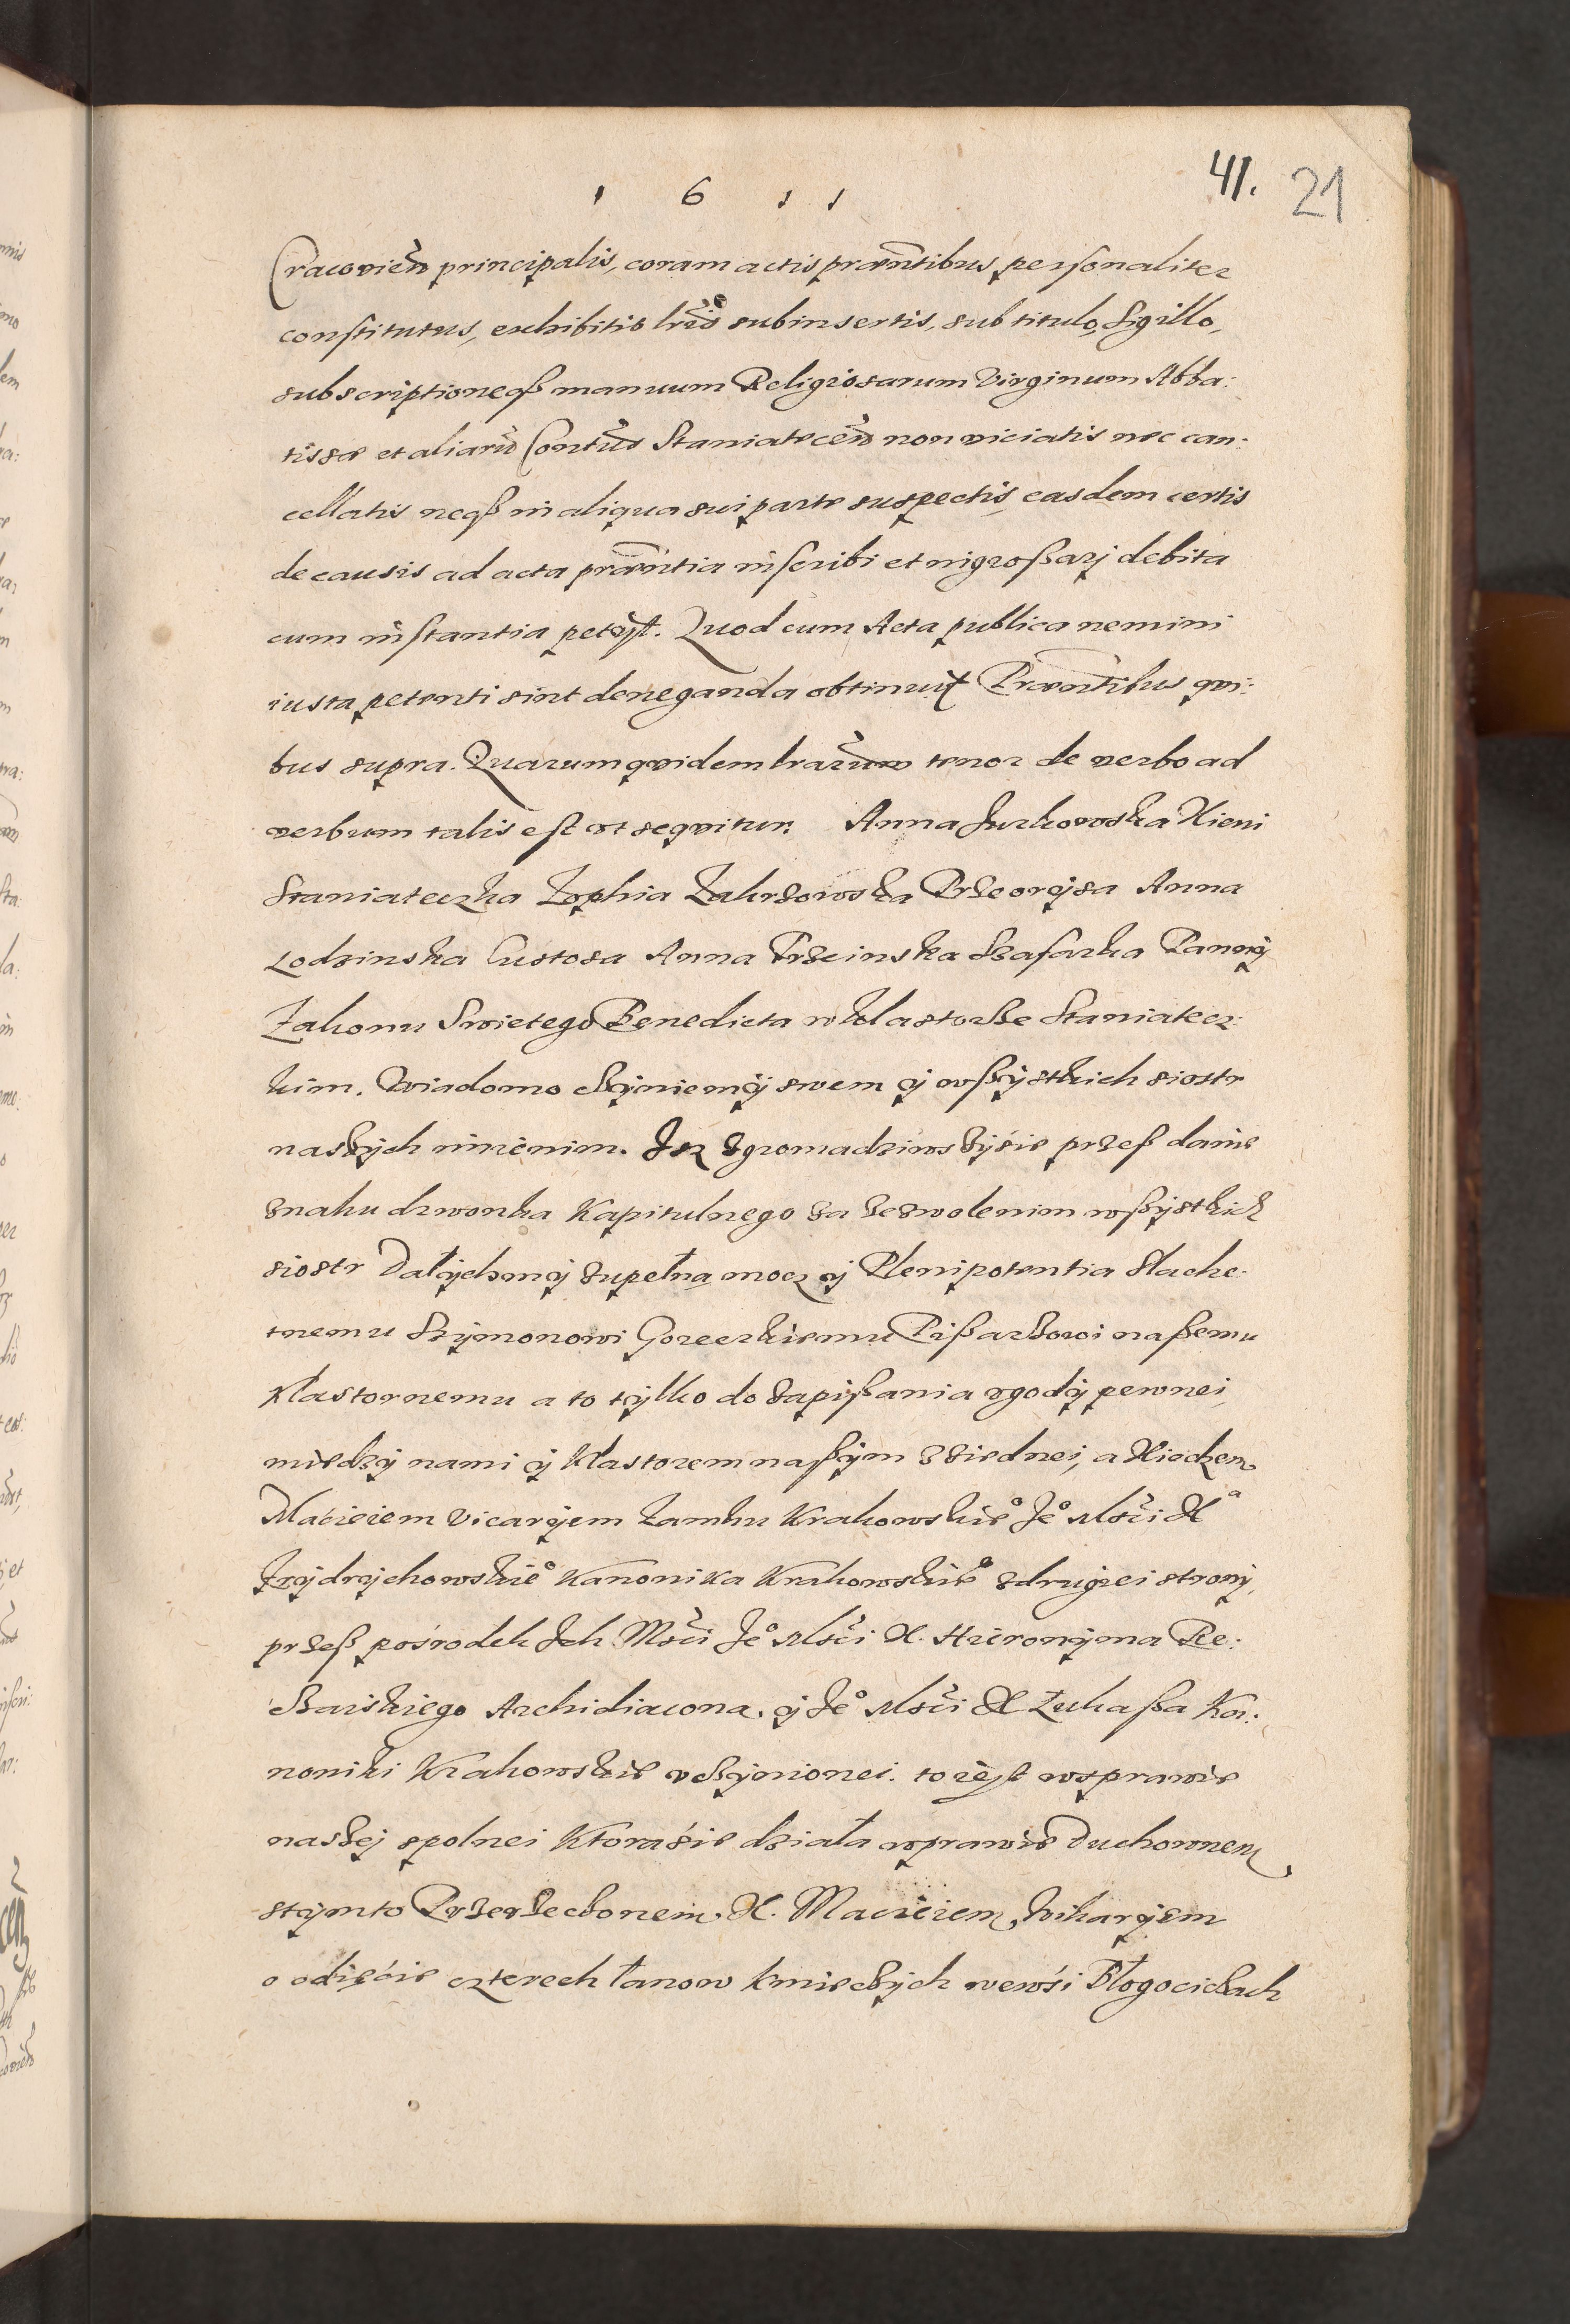 1 6 1 1
41. 21
Cracovien̄ principalis, coram actis præn̄tibus personaliter
constitutus, exhibitis lr̄is subinsertis, sub titulo, Sigillo,
subscriptioneqȝ manuum Religiosarum Virginum Abba:
tissæ et aliarū Contūs Staniatecen̄ non viciatis nec can:
cellatis neqȝ in aliqua sui parte suspectis, easdem certis
de causis ad acta præn̄tia inscribi et ingroßarj debita
cum instantia petÿt. Quod cum Acta publica nemini
iusta petenti sint deneganda obtinuit Præn̄tibus qui:
bus supra. Quarum quidem lrarum tenor de verbo ad
verbum talis est ut sequitur. Anna Jurkowska Xieni
Staniateczka Zophia Zakrzowska Przeorÿsa Anna
Lodzinska Custosa Anna Trzcinska Szafarka Pannÿ
Zakonu Swietego Benedicta w Klastorze Staniatecz:
kim. Wiadomo czÿniemÿ swem ÿ wßÿstkich siostr
naszÿch imienim. Jsz zgromadziwszÿsie przeß danie
znaku dzwonka Kapitulnego za zezwolenim wßÿstkich
siostr Dałÿchmÿ zupełna mocz ÿ Plenipotentia Slache:
tnemu Szÿmonowi Goreczkiemu Pißarzowi naßemu
Klastornemu a to tÿlko do zapißania vgodÿ pewnei,
miedzÿ nami ÿ Klastorem naßÿm z iednei, a Xiedzem
Macieiem Vicarÿem Zamku Krakowskieº Jeº Mści Xª
Jzÿdrÿchowskieº Kanonika Krakowskieº z drugiei stronÿ,
przeß pośrodek Jch Mści Jeº Mści X. Hieronÿma Re:
Szaiskiego Archidiacona. ÿ Jeº Mści X Łukaßa Ka:
noniki Krakowskie vczÿnionei. to iest wsprawie
naszej spolnei Ktorasie działa wprawie Duchownem,
stÿmto Przerzeczonem. X. Macieiem, Wikarÿem
o odięcie czterech łanow kmieczÿch wewśi Błogociczach